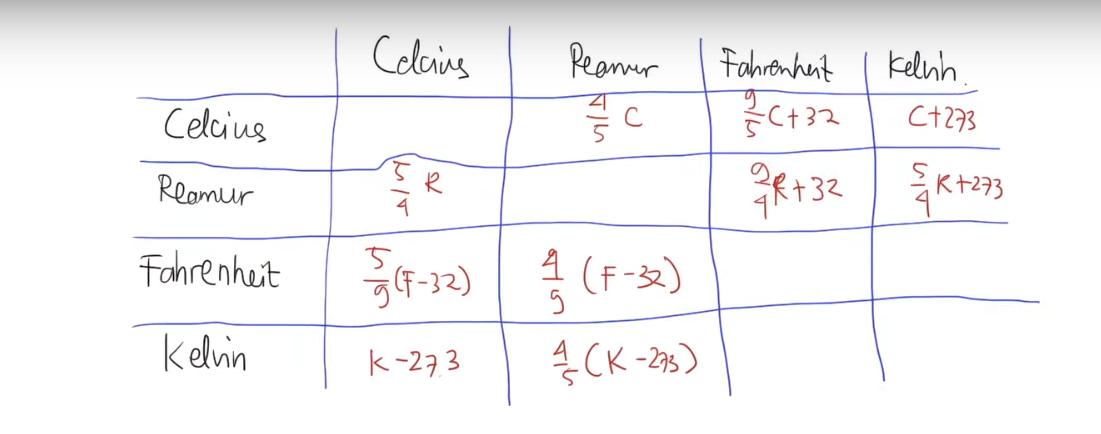 Celcius Reamur Fahrenheit Kelvin
Celcius 4/5 C 9/5 C+32 C+273
Reamur 5/4 R 9/4 R+32 5/4 R+273
Fahrenheit 5/9 (F-32) 4/9 (F-32)
Kelvin K-273 4/5 (K-273)